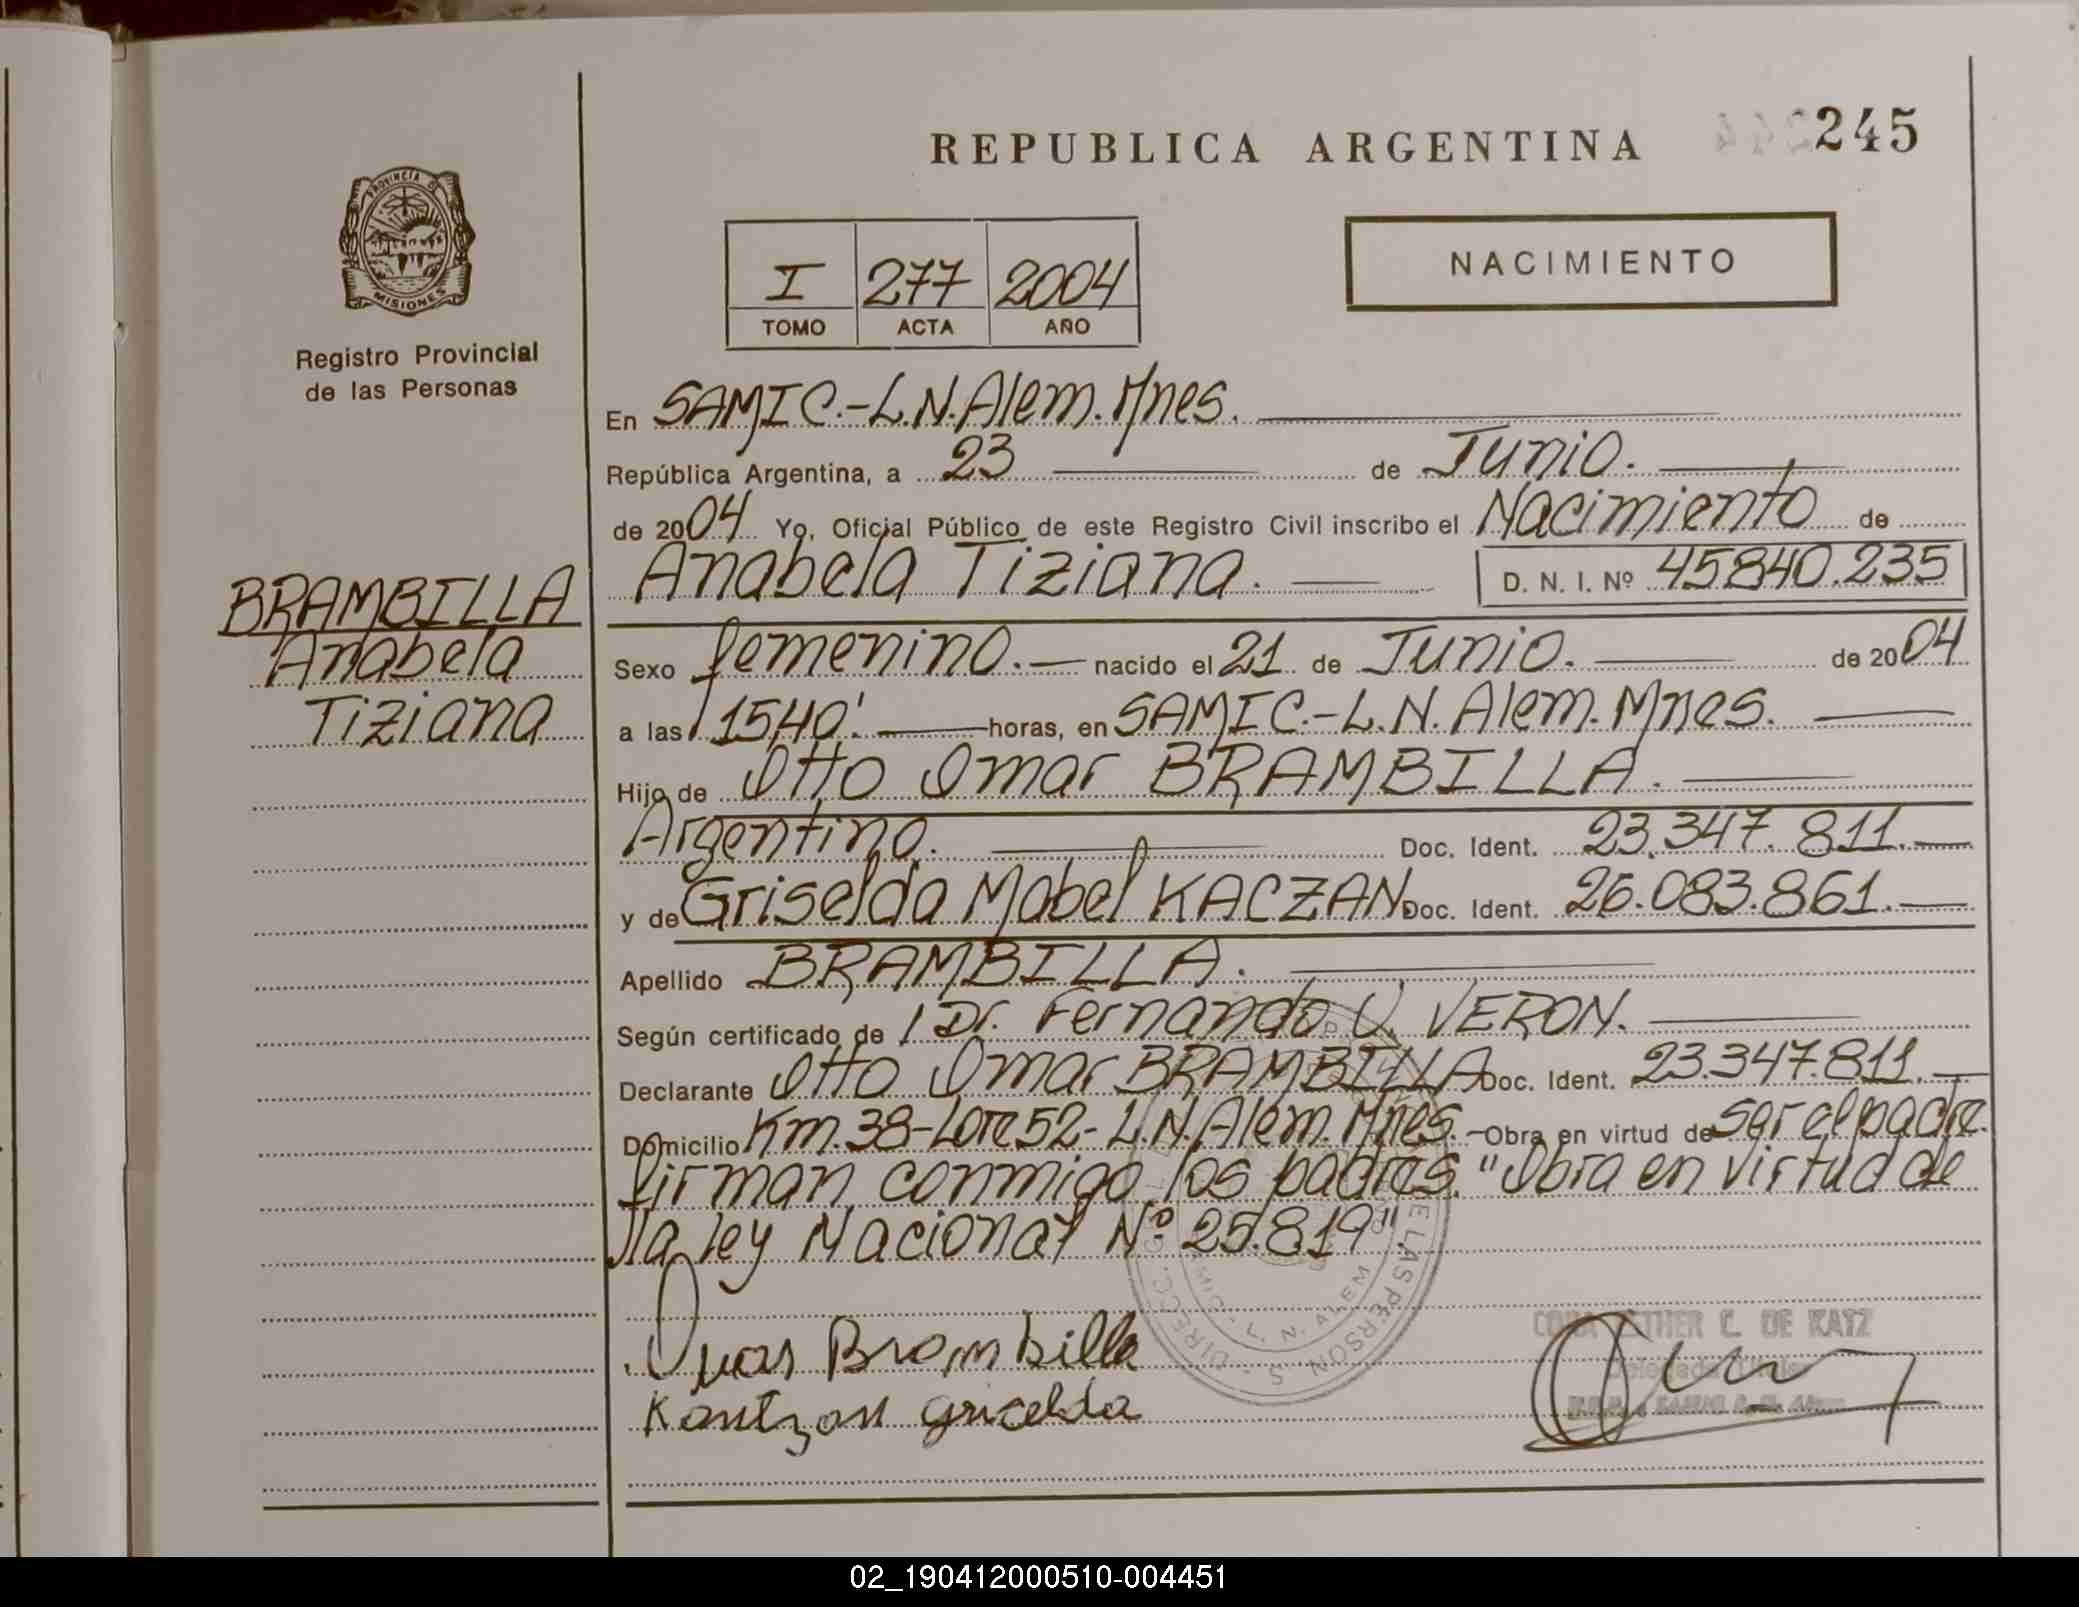 REPUBLICA ARGENTINA 245
PROVINCIA DE
MISIONES
Registro Provincial
de las Personas
NACIMIENTO
I 277 2004
TOMO ACTA AÑO
En SAMIC.-L.N.Alem.Mnes.
República Argentina, a 23 de Junio.
de 2004 Yo, Oficial Público de este Registro Civil inscribo el Nacimiento de
Anabela Tiziana. D. N. I. Nº 45840.235
BRAMBILLA
Anabela
Tiziana
Sexo femenino.- nacido el 21 de Junio. de 2004
a las 15,40'. horas, en SAMIC.-L.N.Alem.Mnes.
Hijo de Otto Omar BRAMBILLA.
Argentino. Doc. Ident. 23.347.811.-
y de Griselda Mabel KACZAN Doc. Ident. 26.083.861.-
Apellido BRAMBILLA.
Según certificado de Dr. Fernando U. VERON.
Declarante Otto Omar BRAMBILLA Doc. Ident. 23.347.811.-
Domicilio Km.38-Lote 52-L.N.Alem.Mnes.- Obra en virtud de ser el padre.
firman conmigo los padres. "Obra en virtud de
la ley Nacional Nº 25.819".
Brambilla
gricelda
L. N. ALEM
ESTHER C. DE KATZ
02_190412000510-004451